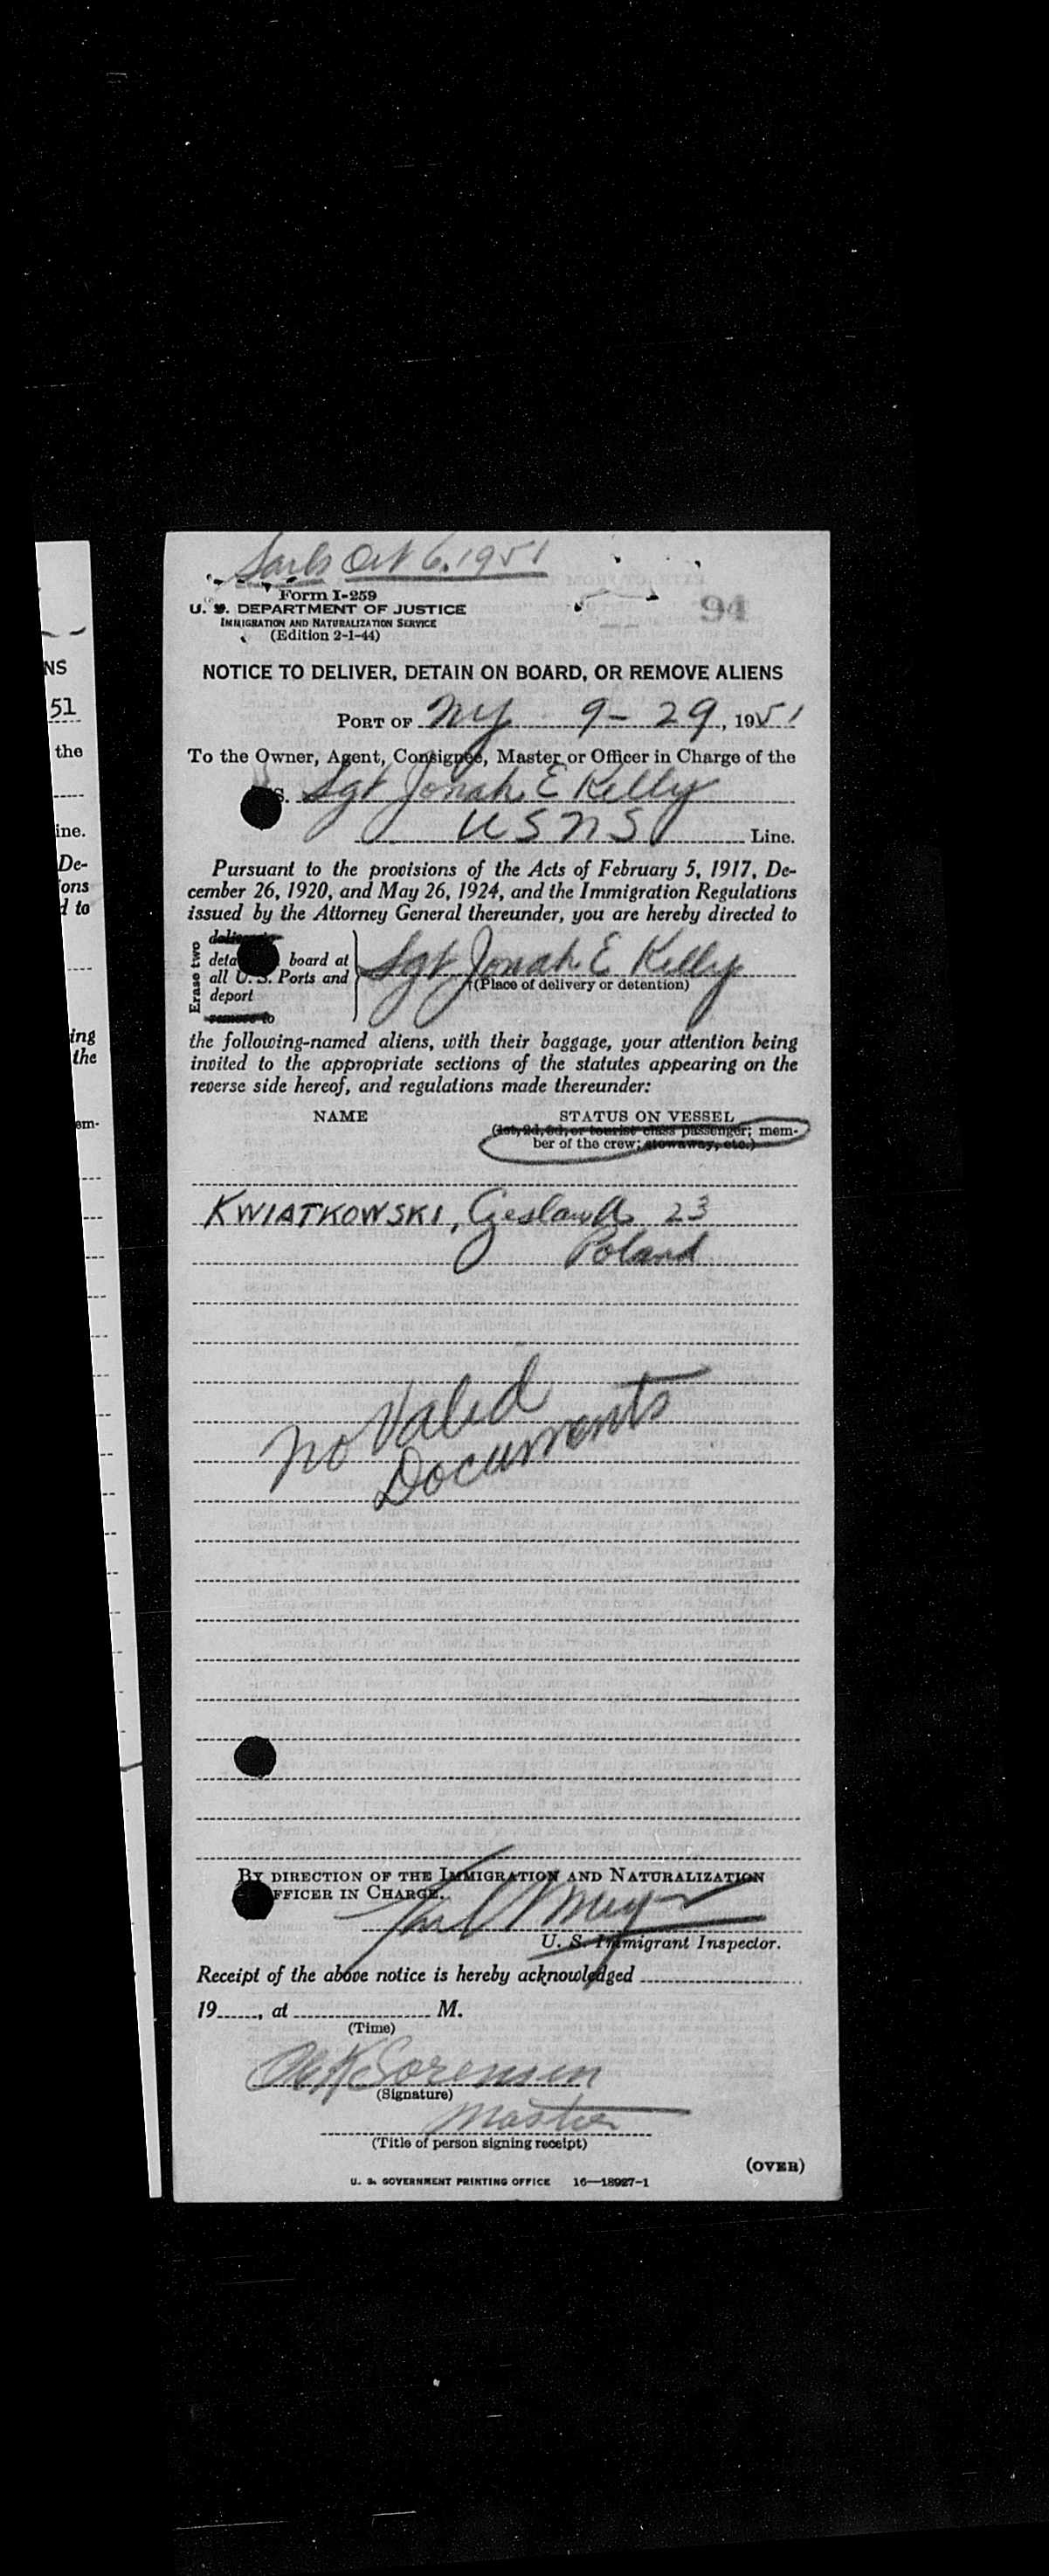 Sails Oct 6, 1951
Form I-259
U. S. DEPARTMENT OF JUSTICE
IMMIGRATION AND NATURALIZATION SERVICE
(Edition 2-1-44)
94
NOTICE TO DELIVER, DETAIN ON BOARD, OR REMOVE ALIENS
PORT OF NY 9-29, 1951
To the Owner, Agent, Consignee, Master or Officer in Charge of the
S. Sgt Jonah E Kelley
USNS Line.
Pursuant to the provisions of the Acts of February 5, 1917, De-
cember 26, 1920, and May 26, 1924, and the Immigration Regulations
issued by the Attorney General thereunder, you are hereby directed to
Erase two
deta board at
all U. S. Ports and
deport
remove to
Sgt Jonah E Kelley
(Place of delivery or detention)
the following-named aliens, with their baggage, your attention being
invited to the appropriate sections of the statutes appearing on the
reverse side hereof, and regulations made thereunder:
NAME STATUS ON VESSEL
(1st, 2d, 3d, or tourist class passenger; mem-
ber of the crew; stowaway, etc.)
KWIATKOWSKI, Czeslaw A 23
Poland
No Valid
Documents
BY DIRECTION OF THE IMMIGRATION AND NATURALIZATION
FFICER IN CHARGE.
U. S. Immigrant Inspector.
Receipt of the above notice is hereby acknowledged
19, at M.
(Time)
Sorensen
(Signature)
Master
(Title of person signing receipt)
(OVER)
U. S. GOVERNMENT PRINTING OFFICE 16—18927-1
NS
51
the
ine.
De-
ons
d to
ing
the
em-